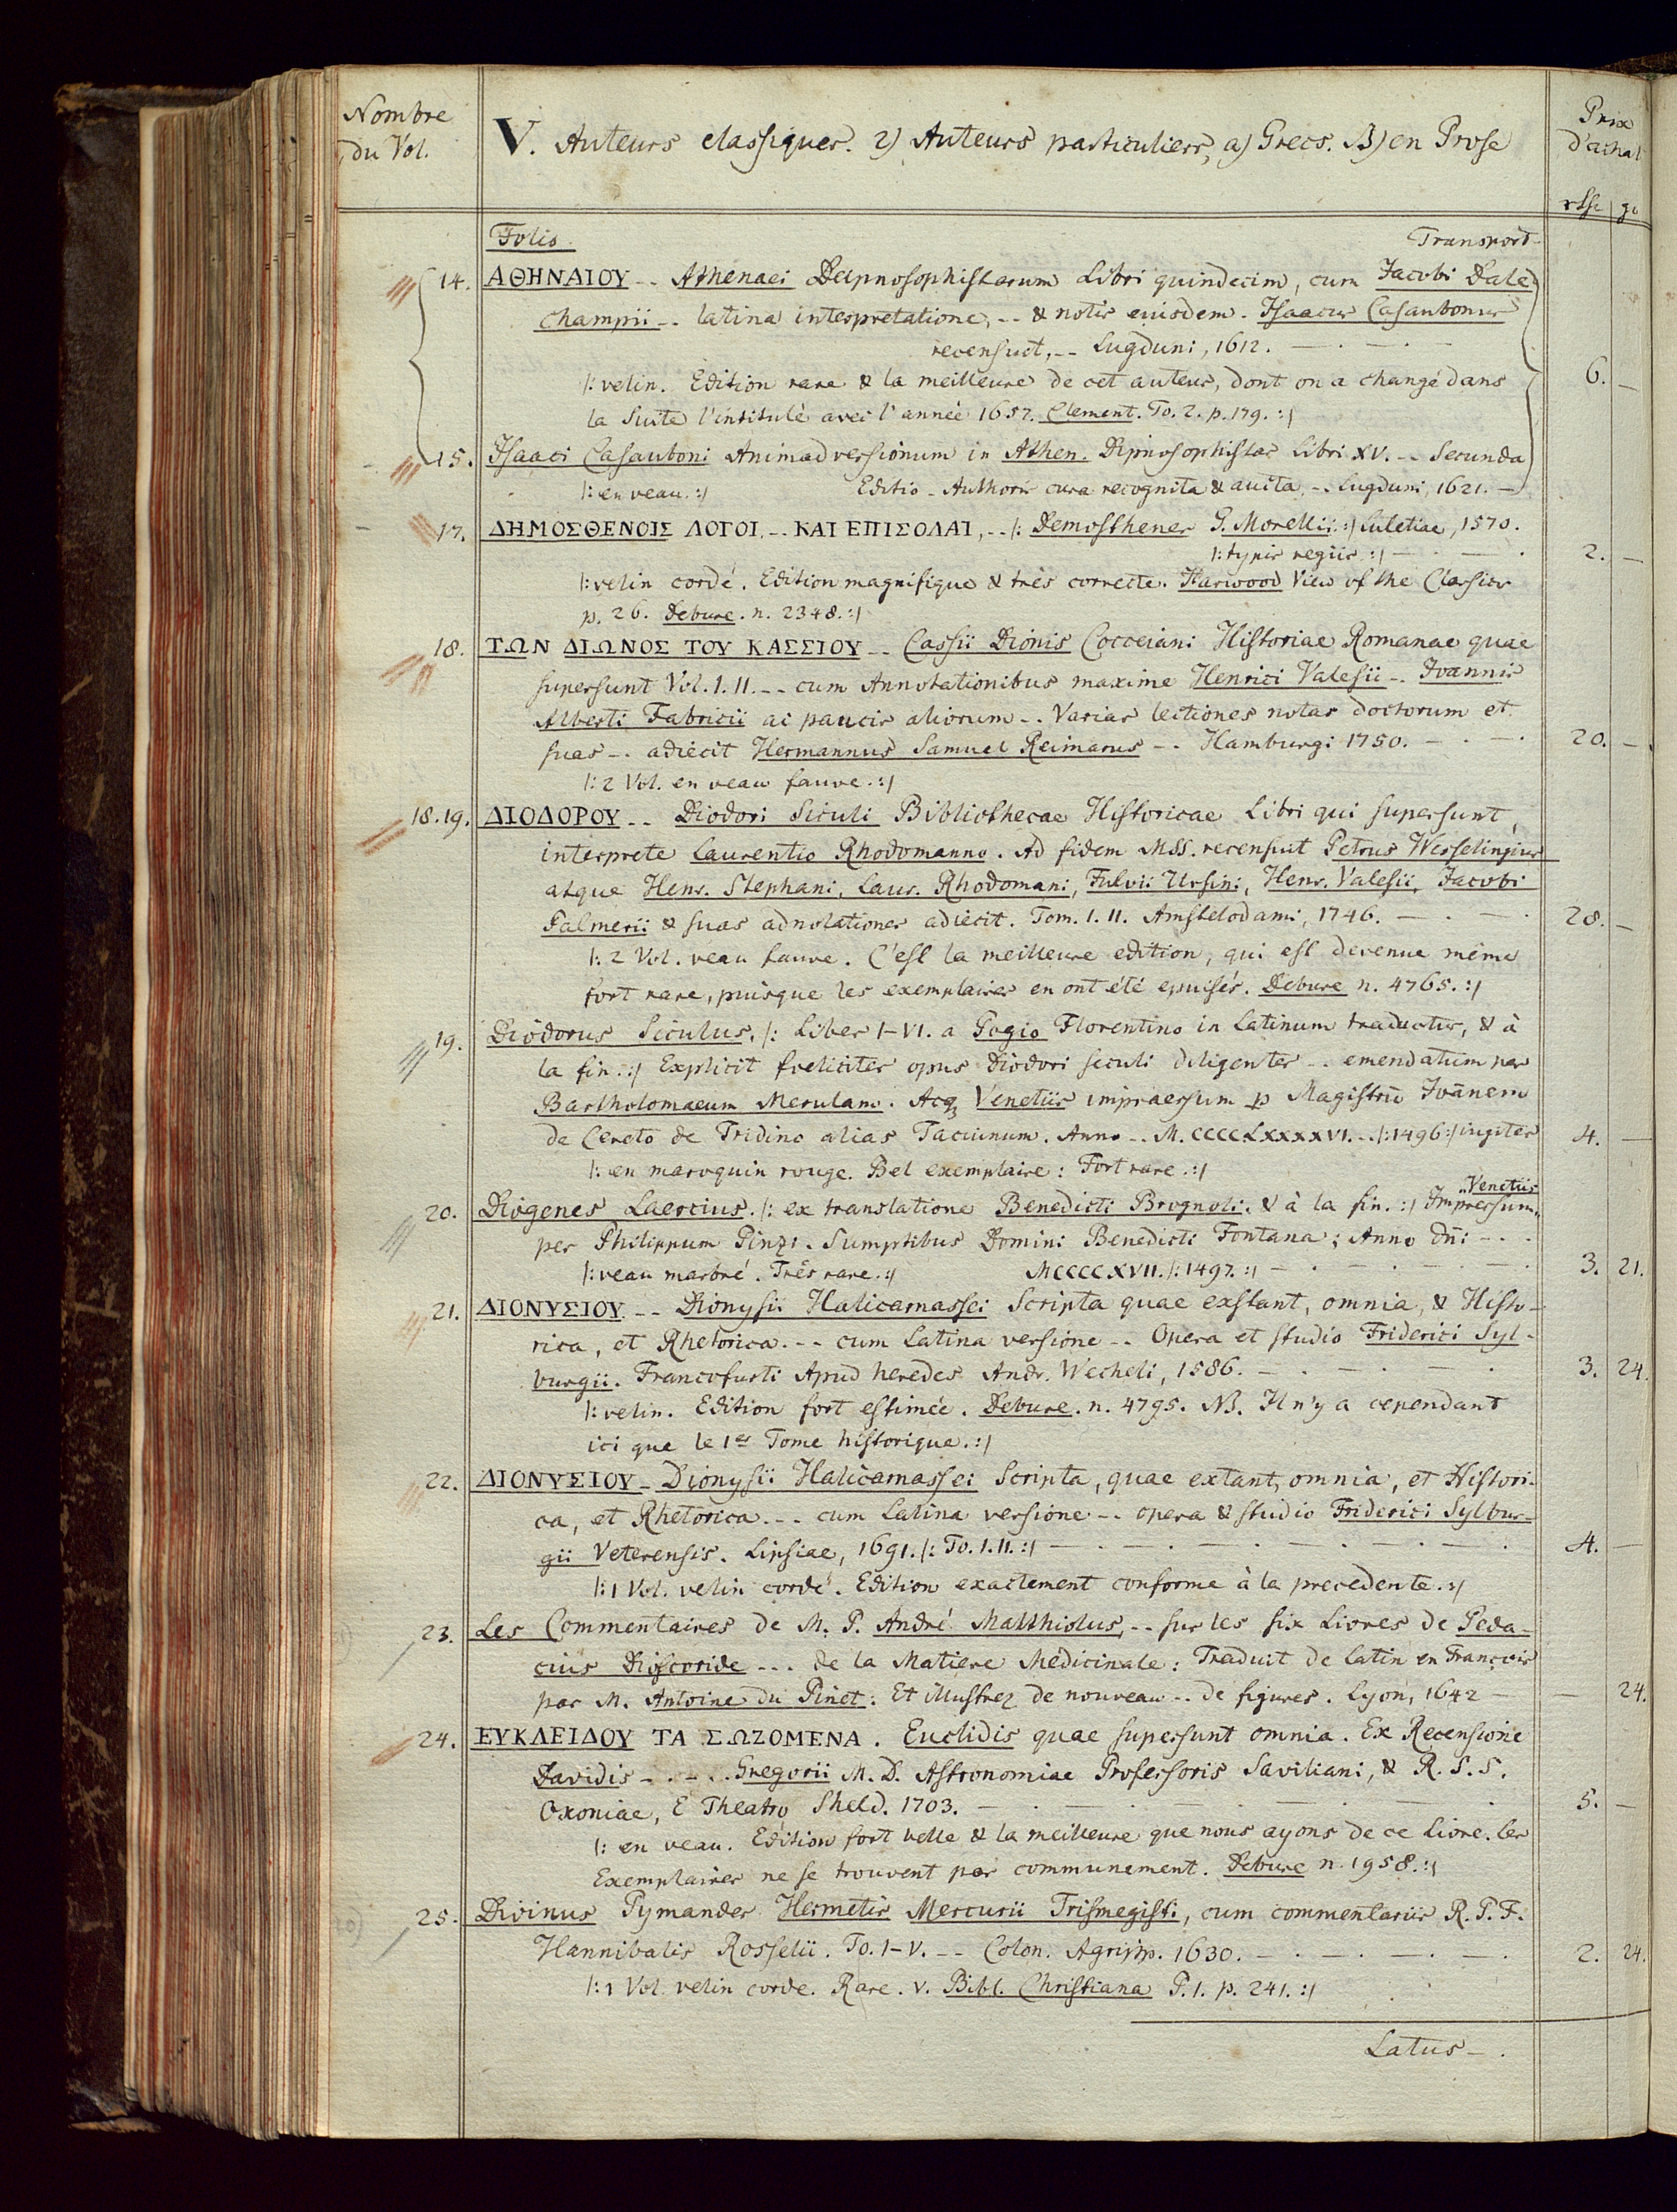 Nombre
du Vol.
V. Auteurs classiques. 2) Auteurs particuliers, a) Grecs. B) en Prose
Prix
d'achat
rthl gr
Folio. Transport
14. ΑΘΗΝΑΙΟΥ -- Athenaei Deipnosophistarum Libri quindecim, cum Jacobi Dale
champii -- latina interpretatione, -- & notis eiusdem. Isaacus Casaubonus
recensuit, -- Lugduni, 1612. — . — . —
/: velin. Edition rare & la meilleure de cet auteur, dont on a changé dans 6. —
la suite l'intitulé avec l'année 1657. Clement. To. 2. p. 179. :/
15. Isaaci Casauboni Animadversionum in Athen. Dipnosophistas Libri XV. -- Secunda
/: en veau. :/ Editio - Authoris cura recognita & aucta, -- Lugduni, 1621. —
17. ΔΗΜΟΣΘΕΝΟΙΣ ΛΟΓΟΙ, -- ΚΑΙ ΕΠΙΣΟΛΑΙ, -- /: Demosthenes G. Morellii :/ Lutetiae, 1570.
/: typis regiis :/ — . — . 2. —
/: velin cordé. Edition magnifique & très correcte. Harwood View of the Classics
p. 26. Debure. n. 2348. :/
18. ΤΩΝ ΔΙΩΝΟΣ ΤΟΥ ΚΑΣΣΙΟΥ -- Cassii Dionis Cocceiani Historiae Romanae quae
supersunt Vol. I. II. -- cum Annotationibus maxime Henrici Valesii -. Ioannis
Alberti Fabricii ac paucis aliorum -. Varias lectiones notas doctorum et
suas -. adiecit Hermannus Samuel Reimarus -. Hamburgi 1750. — . — . 20. —
/: 2 Vol. en veau fauve. :/
18. 19. ΔΙΟΔΟΡΟΥ -- Diodori Siculi Bibliothecae Historicae Libri qui supersunt,
interprete Laurentio Rhodomanno. Ad fidem MSS. recensuit Petrus Wesselingius
atque Henr. Stephani, Laur. Rhodomani, Fulvii Ursini, Henr. Valesii, Jacobi
Palmerii & suas adnotationes adiecit. Tom. I. II. Amstelodami, 1746. — . — . 28. —
/: 2 Vol. veau fauve. C'est la meilleure edition, qui est devenue même
fort rare, puisque les exemplaires en ont été epuisés. Debure n. 4765. :/
19. Diodorus Siculus, /: Liber I-VI. a Pogio Florentino in Latinum traductus, & à
la fin. :/ Explicit foeliciter opus Diodori siculi diligenter -. emendatum per
Bartholomaeum Merulam. Atq Venetiis impraessum p Magistrū Joānem
de Cereto de Tridino alias Tacuinum. Anno -- M. CCCC LXXXXVI. -- /: 1496 :/ 4. —
/: en maroquin rouge. Bel exemplaire: Fort rare. :/
20. Diogenes Laercius. /: ex translatione Benedicti Brognoli. & à la fin. :/ Impressum Venetiis
per Philippum Pinzi. Sumptibus Domini Benedicti Fontana; Anno Dn̄i - - .
/: veau marbré. Très rare. :/ MCCCCXVII. /: 1497. :/ — . — . — . — . 3. 21.
21. ΔΙΟΝΥΣΙΟΥ. -- Dionysii Halicarnassei Scripta quae exstant, omnia, & Histo-
rica, et Rhetorica. -- cum Latina versione -. Opera et studio Friderici Syl-
burgii. Francofurti Apud heredes Andr. Wecheli, 1586. — . — . — . 3. 24.
/: velin. Edition fort estimée. Debure. n. 4795. NB. Il n'y a cependant
ici que le 1er Tome historique. :/
22. ΔΙΟΝΥΣΙΟΥ - Dionysii Halicarnassei Scripta, quae extant, omnia, et Histori-
ca, et Rhetorica. -- cum Latina versione -. opera & studio Friderici Sylbur-
gii Veterensis. Lipsiae, 1691. /: To. I. II. :/ — . — . — . — . — . 4. —
/: 1 Vol. velin cordé. Edition exactement conforme à la precedente. :/
23. Les Commentaires de M. P. André Matthiolus, -- sur les six Livres de Peda-
cius Dioscoride --. de la Matiere Medicinale: Traduit de latin en François
par M. Antoine du Pinet: Et illustrez de nouveau -. de figures. Lyon, 1642 — — 24.
24. ΕΥΚΛΕΙΔΟΥ ΤΑ ΣΩΖΟΜΕΝΑ. Euclidis quae supersunt omnia. Ex Recensione
Davidis - . - . . Gregorii M. D. Astronomiae Professoris Saviliani, & R. S. S.
Oxoniae, E Theatro Sheld. 1703. — . — . — . — . — . 5. —
/: en veau. Edition fort belle & la meilleure que nous ayons de ce Livre. les
Exemplaires ne se trouvent pas communement. Debure n. 1958. :/
25. Divinus Pymander Hermetis Mercurii Trismegisti, cum commentariis R. P. F.
Hannibalis Rosselii. To. I-V. -- Colon. Agripp. 1630. — . — . — . — . 2. 24.
/: 1 Vol. velin corde. Rare. v. Bibl. Christiana P. I. p. 241. :/
Latus — .